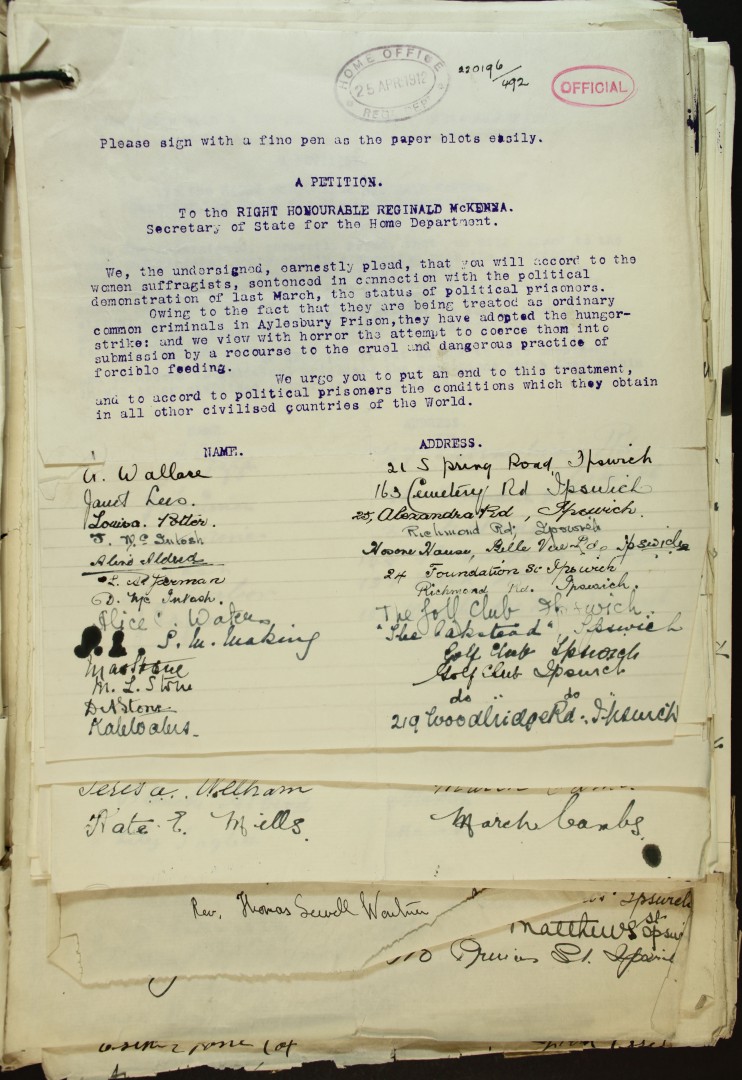 HOME OFFICE
25 APR 1912
220196/492
OFFICIAL
Please sign with a fine pen as the paper blots easily.
A PETITION.
To the RIGHT HONOURABLE REGINALD McKENNA.
Secretary of State for the Home Department.
We, the undersigned, earnestly plead, that you will accord to the
women suffragists, sentenced in connection with the political
demonstration of last March, the status of political prisoners.
Owing to the fact that they are being treated as ordinary
common criminals in Aylesbury Prison,they have adopted the hunger-
strike: and we view with horror the attempt to coerce them into
submission by a recourse to the cruel and dangerous practice of
forcible feeding.
We urge you to put an end to this treatment,
and to accord to political prisoners the conditions which they obtain
in all other civilised countries of the World.
NAME. ADDRESS.
Wallace 21 Spring Road, Ipswich
Janet Lees. 163 Cemetery Rd Ipswich
Louisa. Potter. 25, Alexandra Rd, Ipswich.
Mc Intosh Richmond Rd; Ipswich
House, Belle Vue Rd. Ipswich
24 Foundation St Ipswich
D. Mc Intosh. Richmond Rd. Ipswich.
Alice The Golf Club Ipswich.
S. M. Making "The Oakstead", Ipswich
Stone Golf Club Ipswich
M. L. Stone Golf Club Ipswich
Stone do " do
219 Woodbridge Rd. Ipswich
Teresa. Weltham
Kate E. Mills. March Cambs.
Rev. Thomas Sewell
Ipswich
Matthews St
St. Ipswich